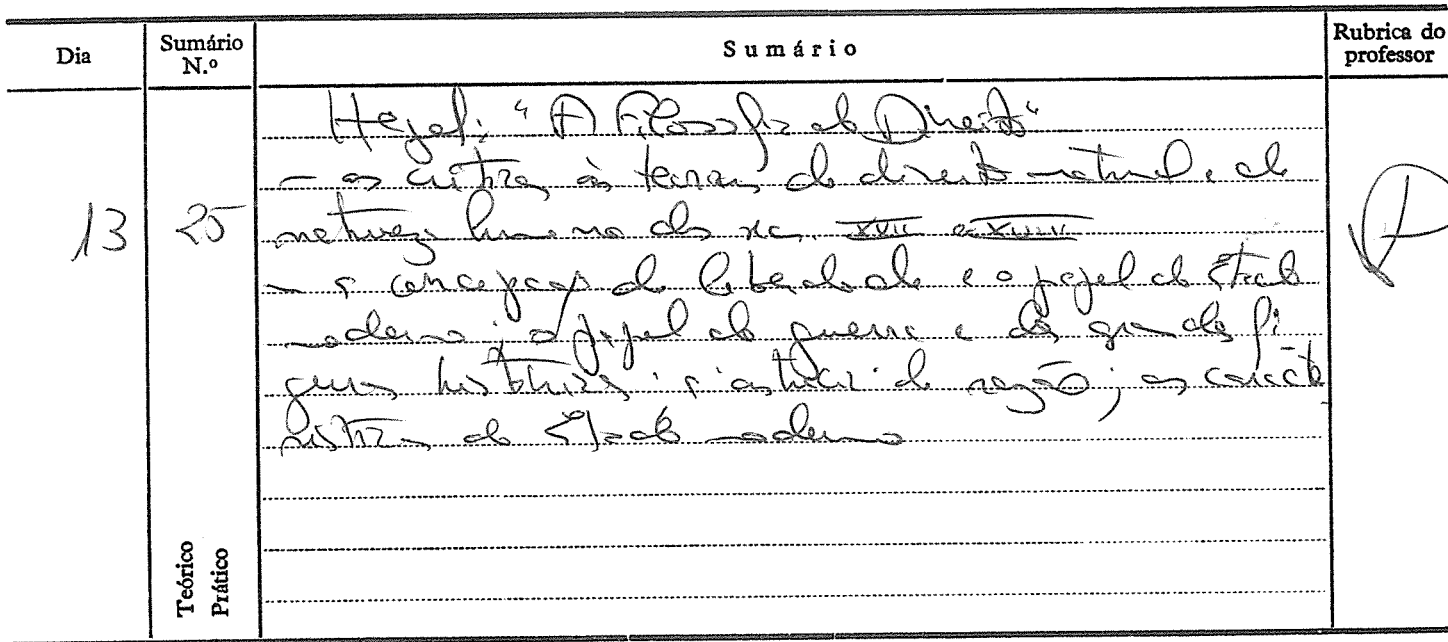 Dia
Sumário N.º
Sumário
Rubrica do professor
13
25
Hegel: "A Filosofia do Direito"
- as críticas às teorias do direito natural e da
natureza humana dos séc. XVII e XVIII
- a concepção de liberdade e o papel do Estado
moderno; o papel da guerra e das grandes fi
guras históricas; a astúcia da razão; as caracte
rísticas do Estado moderno
Teórico
Prático